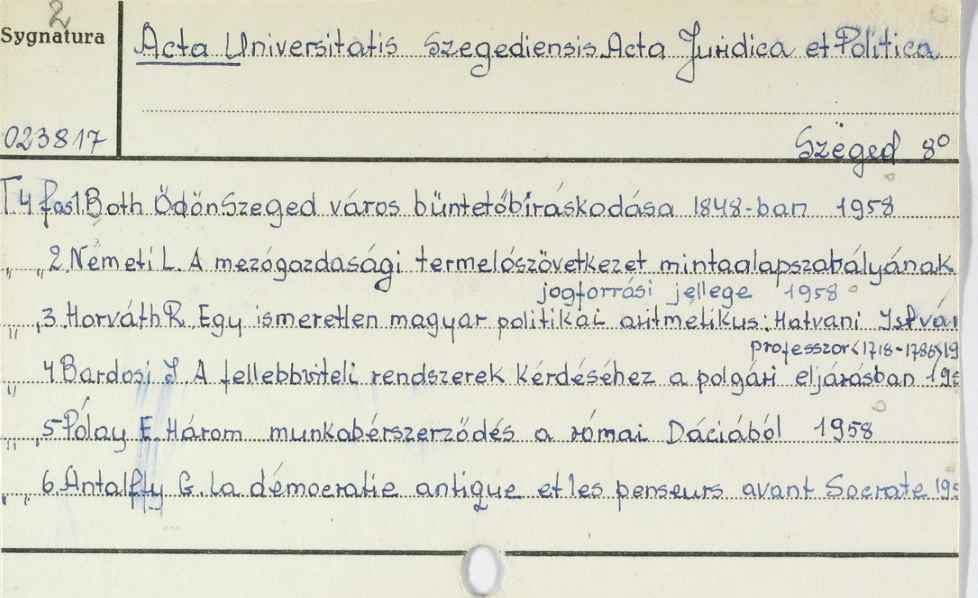 2
Sygnatura
Acta Universitatis Szegediensis. Acta Juridica et Politica
023817
Szeged 8°
T. 4 fas 1. Both Ödön Szeged város büntetőbíráskodása 1848-ban 1958
„ „ 2. Németi L. A mezőgazdasági termelőszövetkezet mintaalapszabályának
jogforrási jellege 1958
„ „ 3. Horváth R. Egy ismeretlen magyar politikai aritmetikus: Hatvani Istvá
professzor (1718-1786) 19
„ 4 Bardosi J. A fellebbviteli rendszerek kérdéséhez a polgári eljárásban 195
„ „ 5 Pólay E. Három munkabérszerződés a római Dáciából 1958
„ „ 6. Antalffy G. La démocratie antique et les penseurs avant Socrate 195